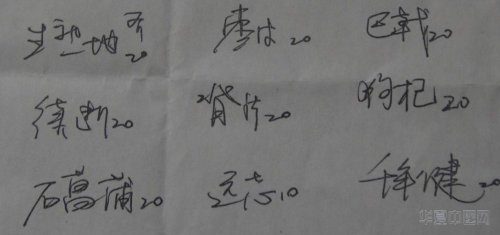 生熟地各20 枣皮20 巴戟20
续断20 20 枸杞20
石菖蒲20 远志10 千年健20
华夏中医网